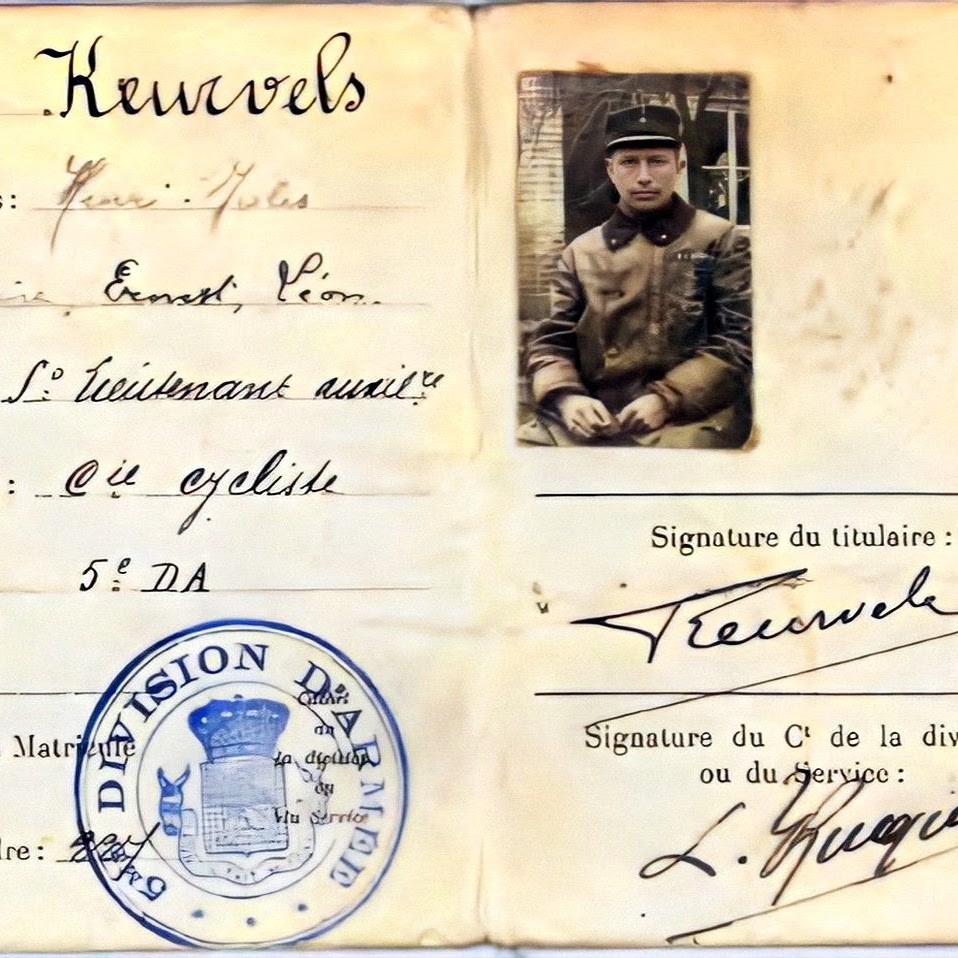 Keurvels
s: Henri Jules
Ernest, Léon.
Sº Lieutenant auxilre
: Cie cycliste
5e DA
Matricule
dre: 227
5e DIVISION D'ARMEE
Cachet
du
la division
ou
du Service
Signature du titulaire :
Keurvels
Signature du Ct de la div
ou du Service :